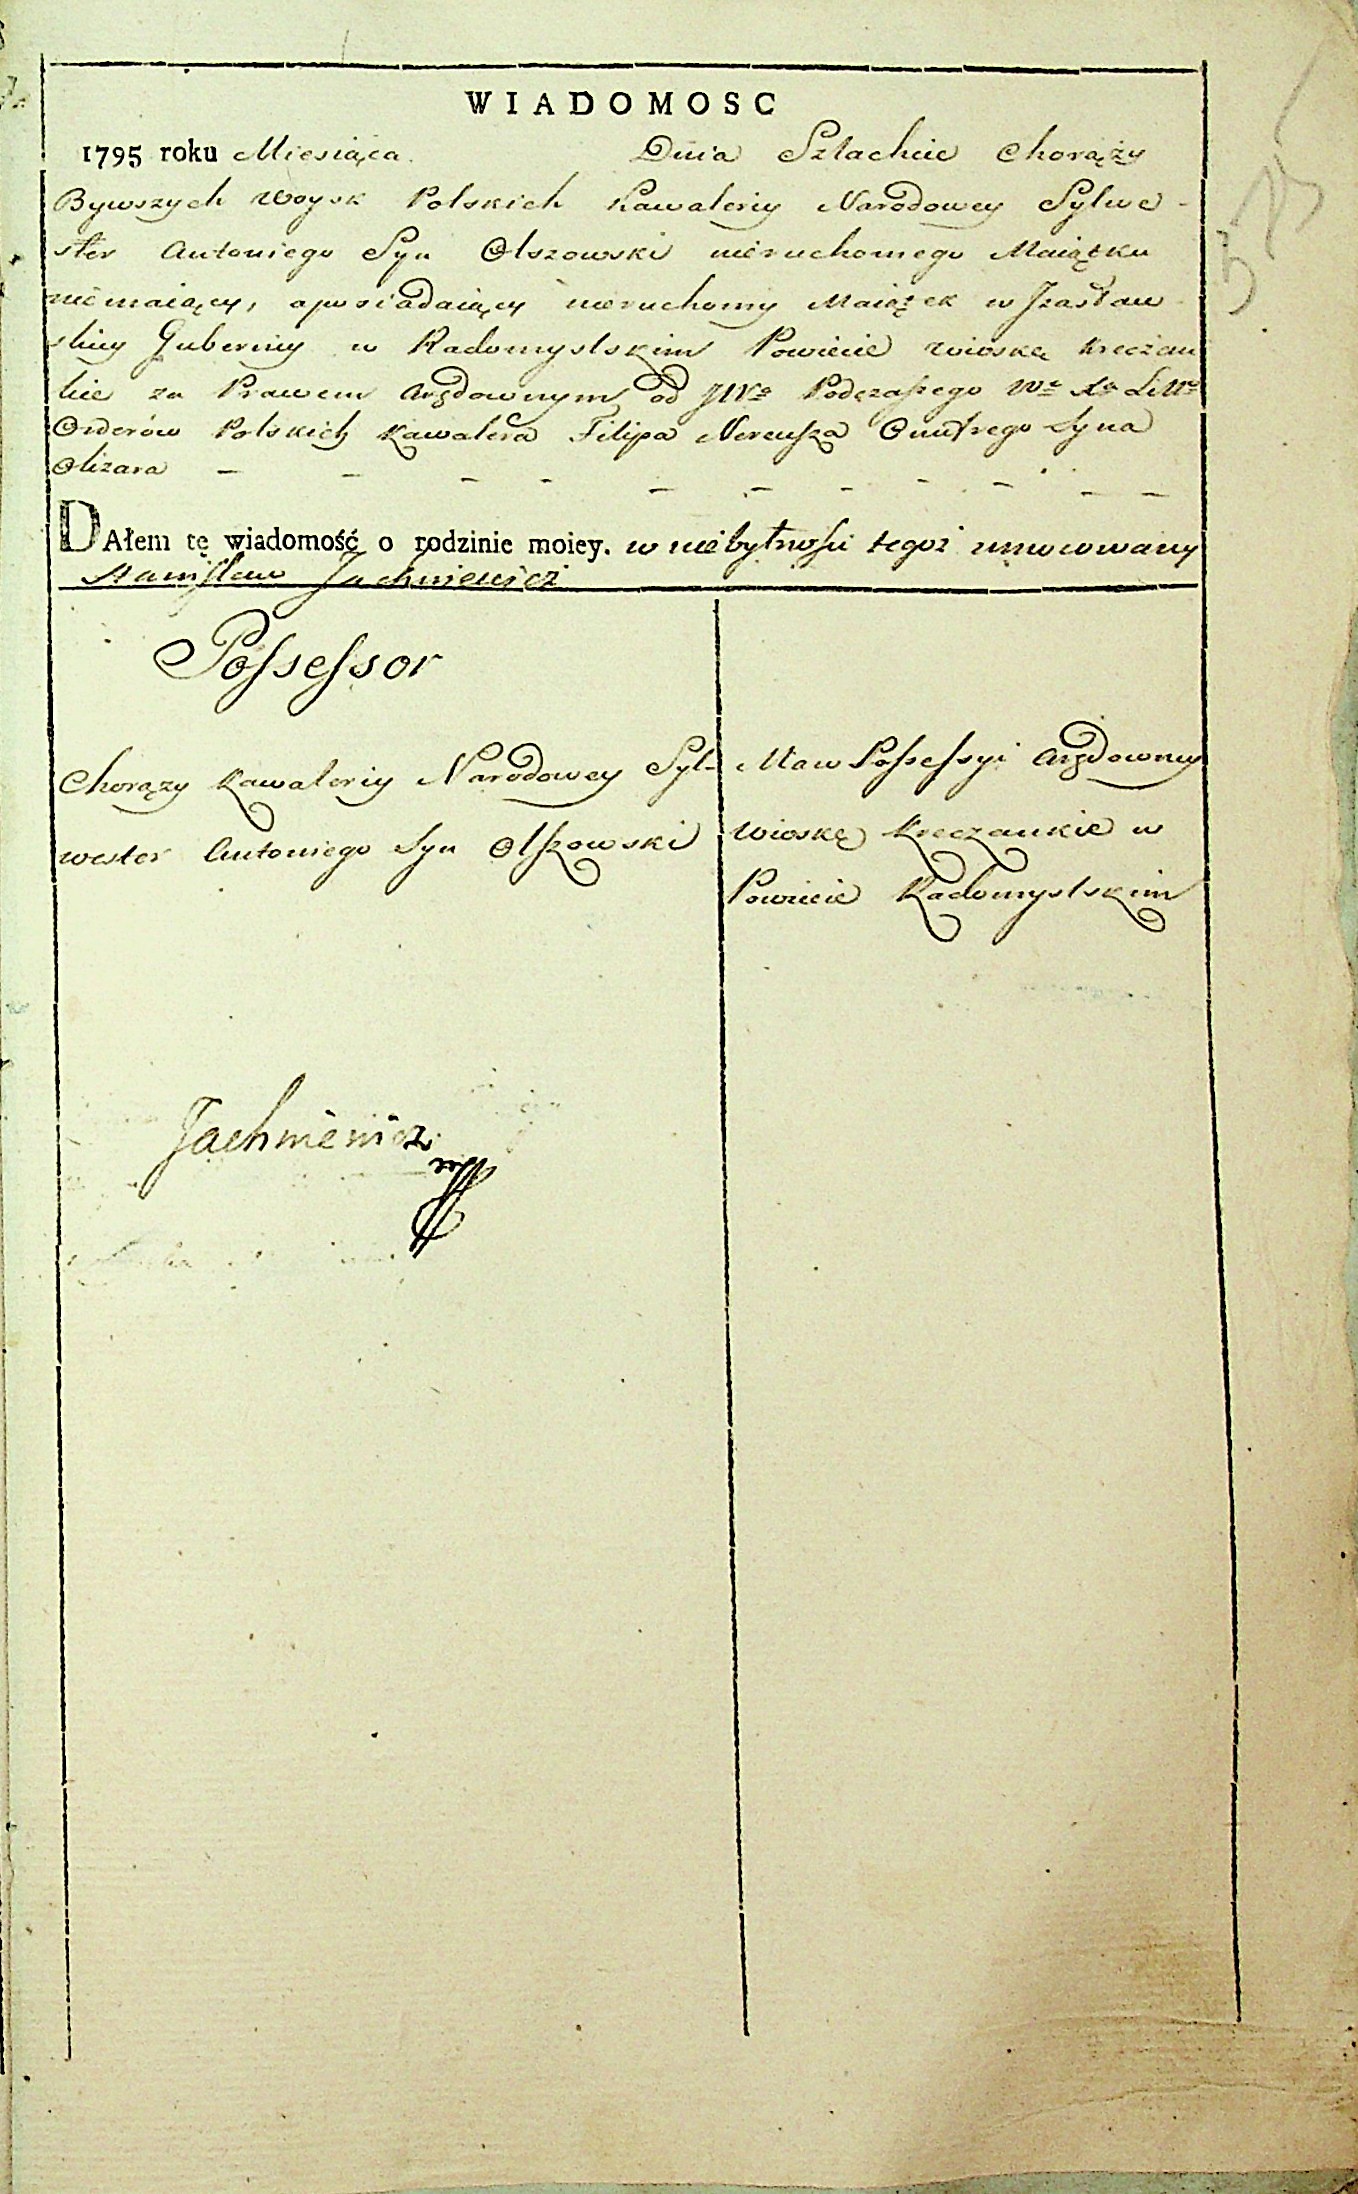 WIADOMOSC
1795 roku Miesiąca Dnia Szlachcic Chorąży
Bywszych Woysk Polskich Kawaleriy Narodowey Sylwe-
ster Antoniego Syn Olszowski nieruchomego Maiątku
niemaiący, a posiadaiący nieruchomy Maiątek w Izasław-
skiey Guberniy w Radomyslskim Powiecie wioskę Kreczan-
kie za Prawem Arędownym od JWo Podczaszego Wo Xa Litto
Orderów Polskich Kawalera Filipa Nereusza Onufrego Syna
Olizara
DAłem tę wiadomość o rodzinie moiey. w niebytności tegoż umocowany
Stanisław Jachniewicz
Possessor
Chorązy Kawaleriy Narodowey Syl-
wester Antoniego Syn Olszowski
Ma w Possessyi Arędowney
wioskę Kreczankie w
Powiecie Radomyslskim
Jachniewicz